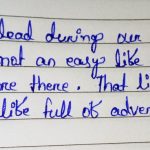 lead during our
not an easy like
ore there. That li
like full of adver